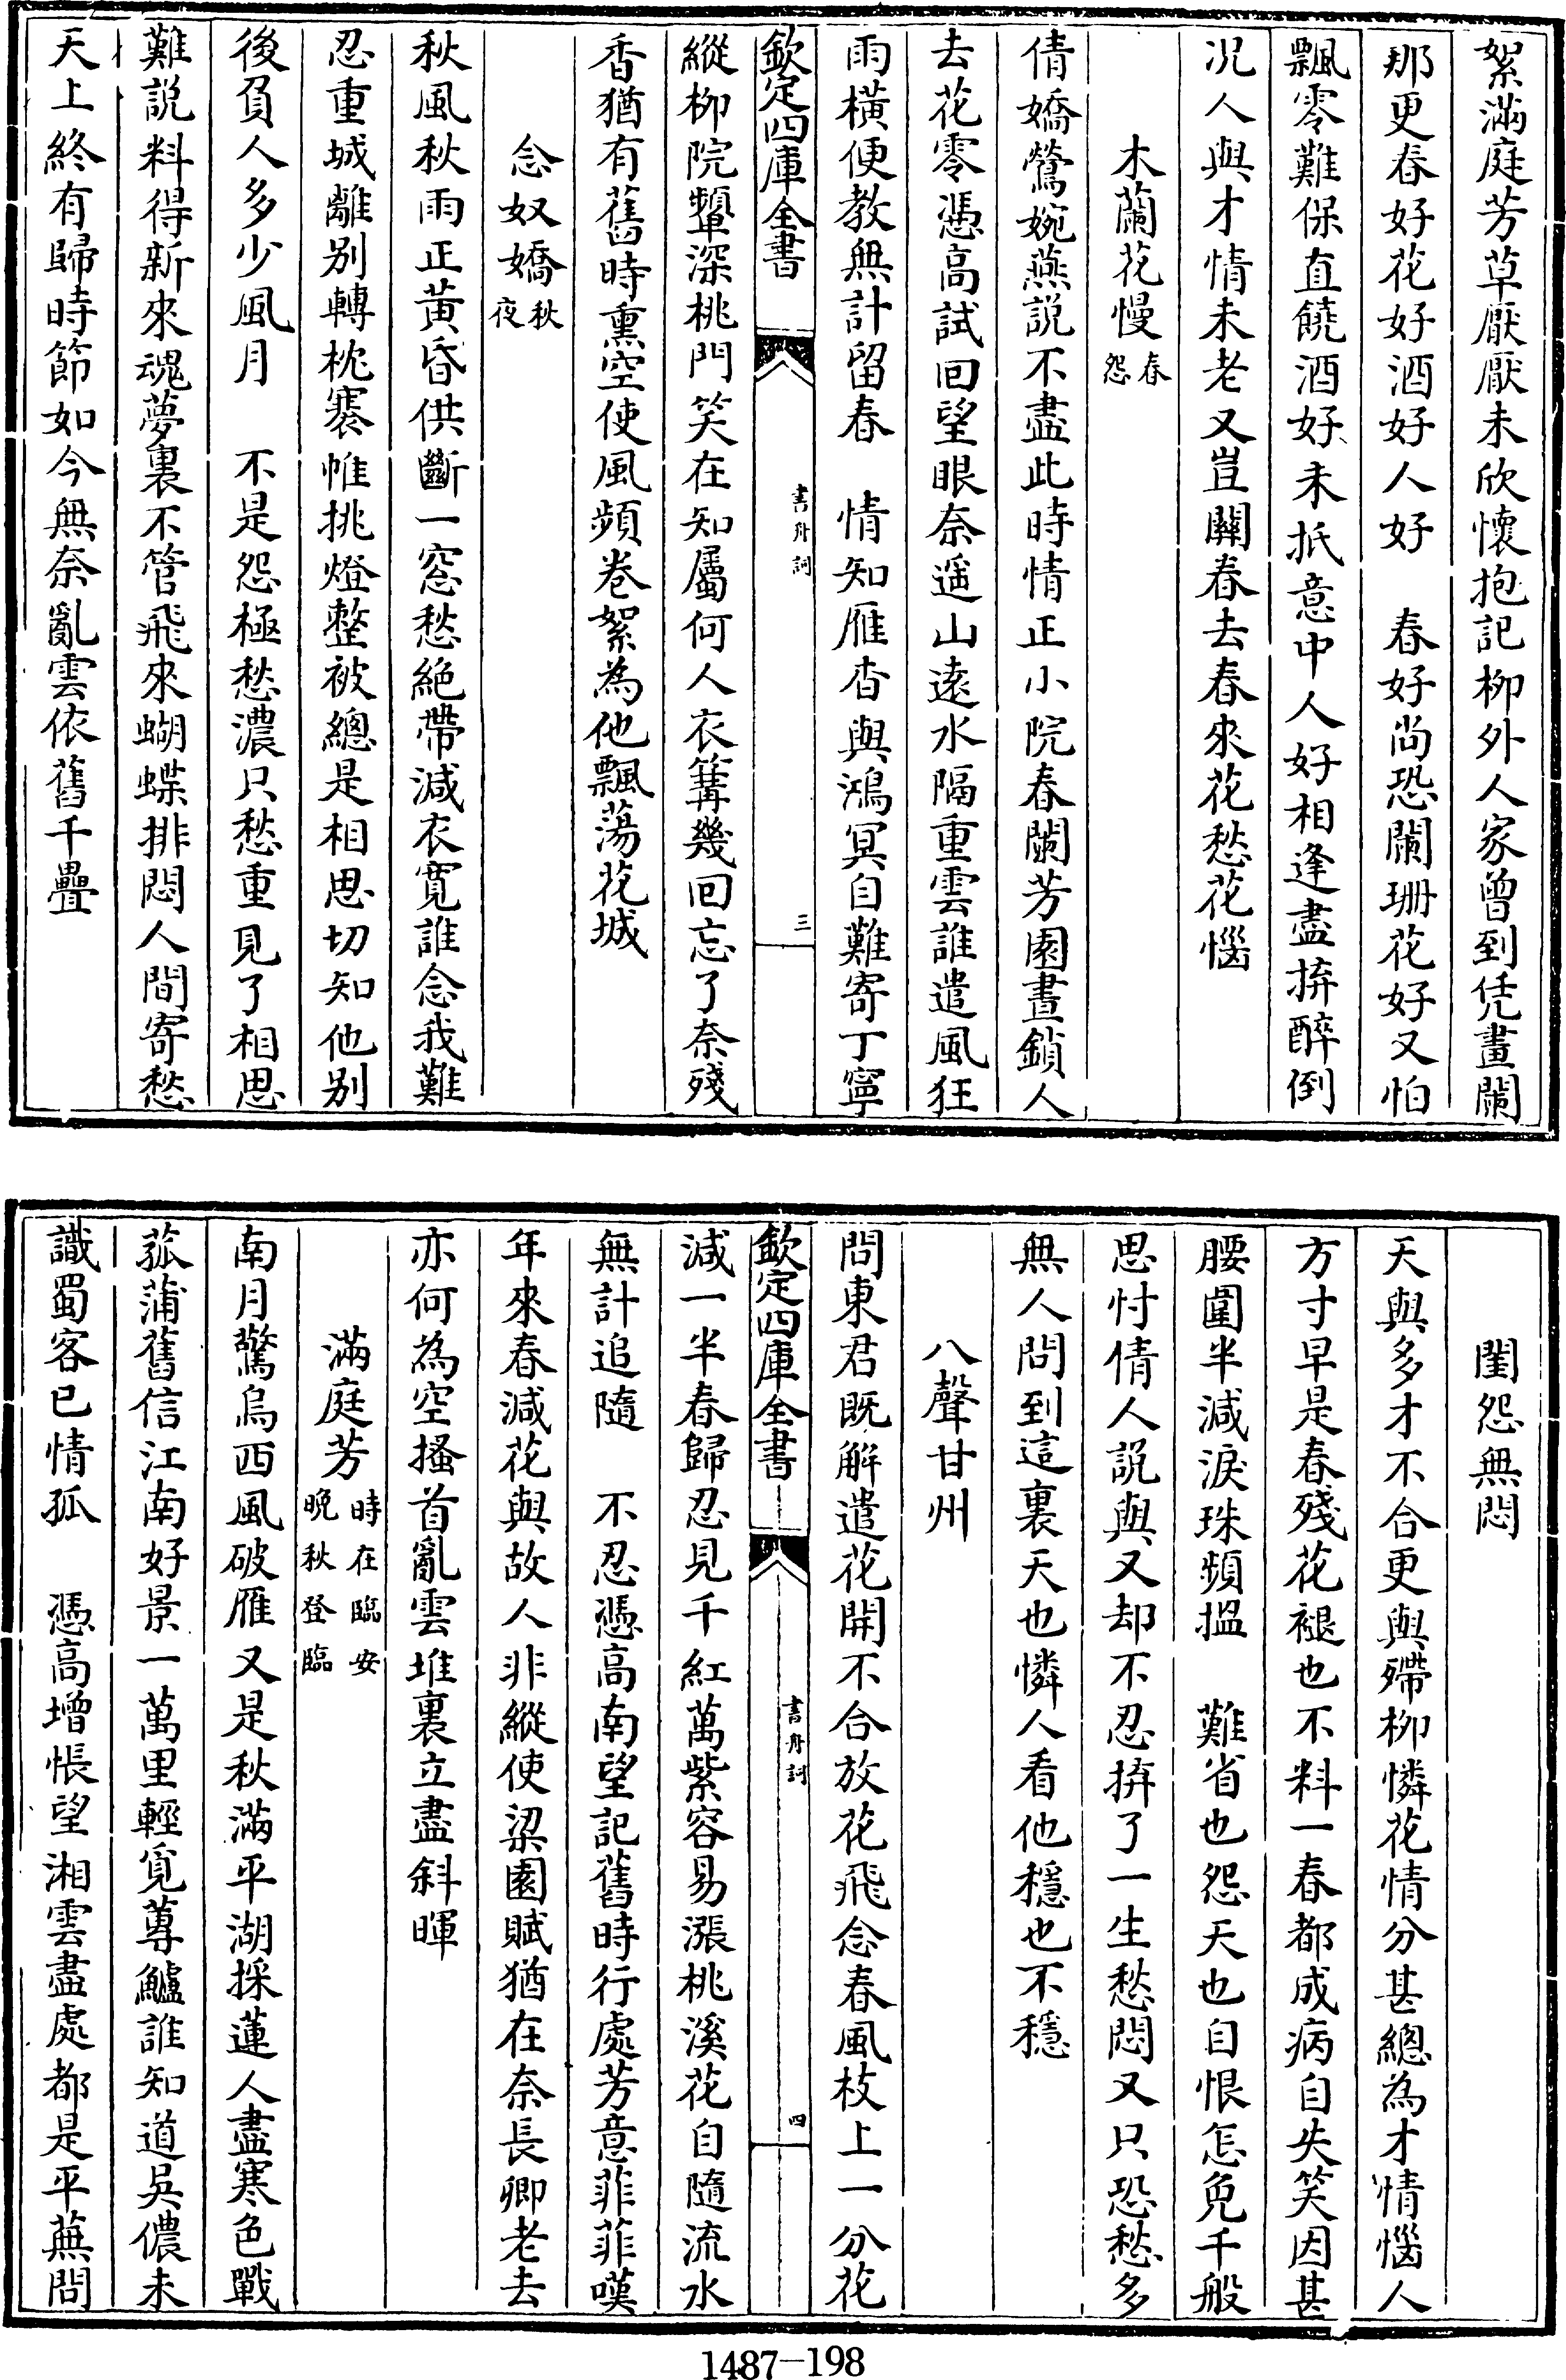 絮滿庭芳草厭厭未欣懷抱記柳外人家曾到凭畫闌
那更春好花好酒好人好　春好尚恐闌珊花好又怕
飄零難保直饒酒好未抵意中人好相逢盡拚醉倒
况人與才情未老又豈關春去春來花愁花惱
木蘭花慢春怨
倩嬌鶯婉燕説不盡此時情正小院春闌芳園晝鎖人
去花零憑高試回望眼奈遥山遠水隔重雲誰遣風狂
雨横便教無計留春　情知雁杳與鴻冥自難寄丁寧
欽定四庫全書　書舟詞　三
縱柳院顰深桃門笑在知屬何人衣篝幾回忘了奈殘
香猶有舊時熏空使風頻卷絮為他飄蕩花城
念奴嬌秋夜
秋風秋雨正黄昏供斷一窓愁絶帶減衣寛誰念我難
忍重城離别轉枕褰帷挑燈整被總是相思切知他别
後負人多少風月　不是怨極愁濃只愁重見了相思
難説料得新來魂夢裏不管飛來蝴蝶排悶人間寄愁
天上終有歸時節如今無奈亂雲依舊千疊
閨怨無悶
天與多才不合更與殢柳憐花情分甚總為才情惱人
方寸早是春殘花褪也不料一春都成病自失笑因甚
腰圍半減淚珠頻揾　難省也怨天也自恨怎免千般
思忖倩人説與又却不忍拚了一生愁悶又只恐愁多
無人問到這裏天也憐人看他穩也不穩
八聲甘州
問東君既解遣花開不合放花飛念春風枝上一分花
欽定四庫全書　書舟詞　四
減一半春歸忍見千紅萬紫容易漲桃溪花自隨流水
無計追隨　不忍憑高南望記舊時行處芳意菲菲嘆
年來春減花與故人非縱使梁園賦猶在奈長卿老去
亦何為空搔首亂雲堆裏立盡斜暉
滿庭芳時在臨安晩秋登臨
南月驚烏西風破雁又是秋滿平湖採蓮人盡寒色戰
菰蒲舊信江南好景一萬里輕覓蓴鱸誰知道吳儂未
識蜀客已情孤　憑高增悵望湘雲盡處都是平蕪問
1487－198